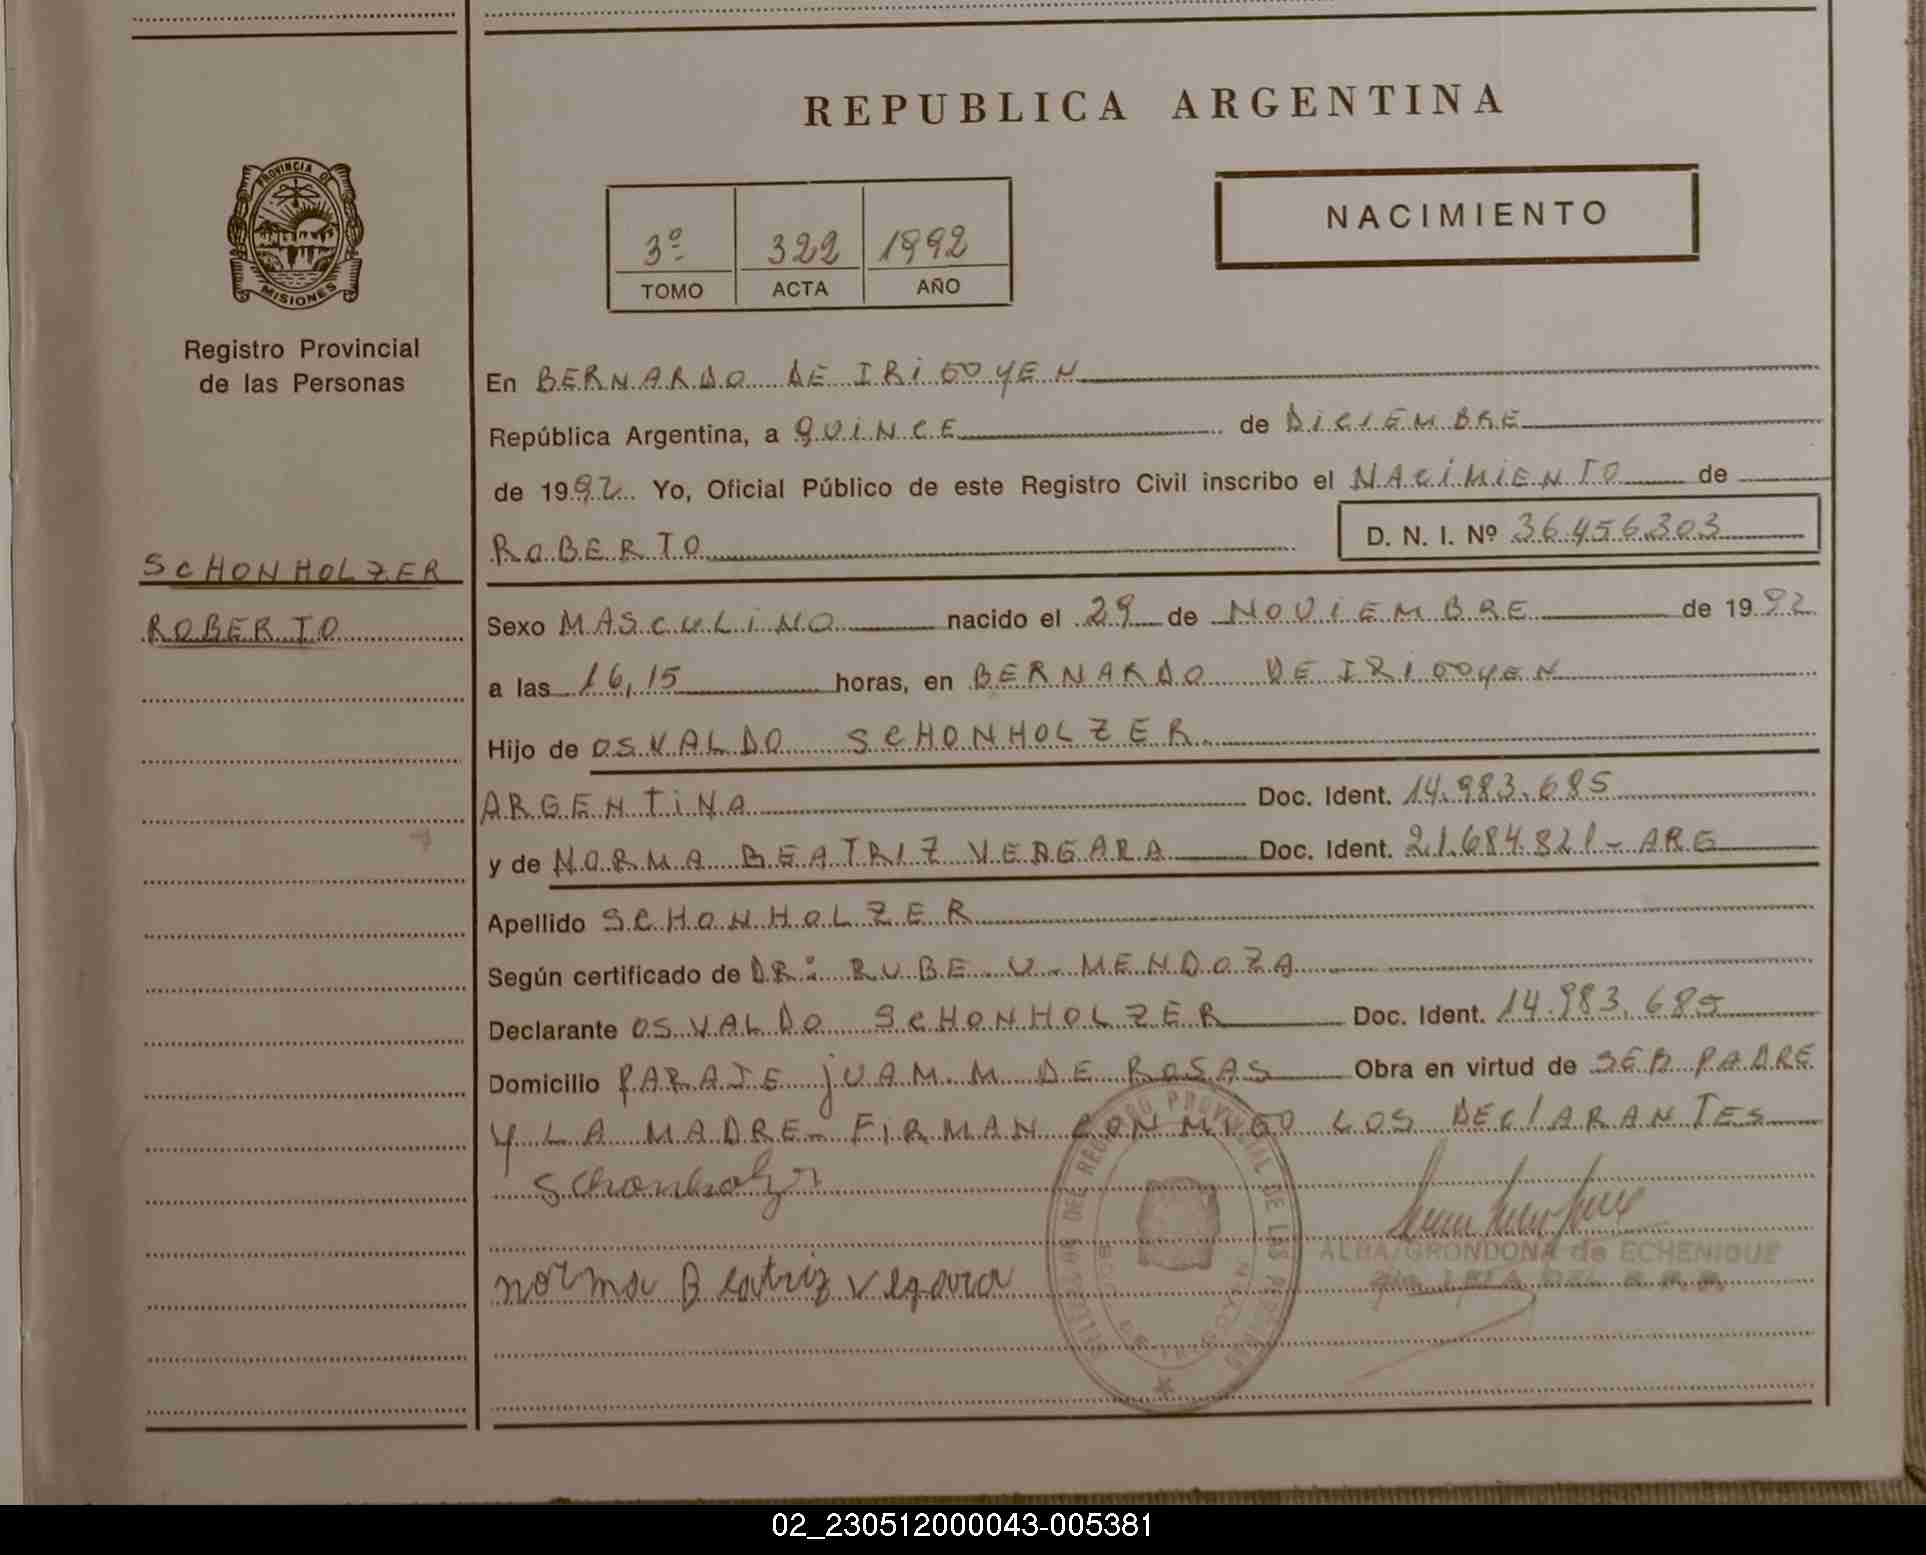 REPUBLICA ARGENTINA
NACIMIENTO
3º 322 1992
TOMO ACTA AÑO
PROVINCIA DE
MISIONES
Registro Provincial
de las Personas
SCHONHOLZER
ROBERTO
En BERNARDO DE IRIGOYEN
República Argentina, a QUINCE de DICIEMBRE
de 1992 Yo, Oficial Público de este Registro Civil inscribo el NACIMIENTO de
ROBERTO D. N. I. Nº 36.456.303
Sexo MASCULINO nacido el 29 de NOVIEMBRE de 1992
a las 16,15 horas, en BERNARDO DE IRIGOYEN
Hijo de OSVALDO SCHONHOLZER
ARGENTINA Doc. Ident. 14.983.685
y de NORMA BEATRIZ VERGARA Doc. Ident. 21.684.821 - ARG
Apellido SCHONHOLZER
Según certificado de DR: RUBE U. MENDOZA
Declarante OSVALDO SCHONHOLZER Doc. Ident. 14.983.685
Domicilio PARAJE JUAM M DE ROSAS Obra en virtud de SER PADRE
Y LA MADRE - FIRMAN CONMIGO LOS DEClARANTES
Schonholzr
norma Beatriz Vegara
ALBA GRONDONA de ECHENIQUE
DEL REGISTRO PROVINCIAL DE LAS PERSONAS
02_230512000043-005381